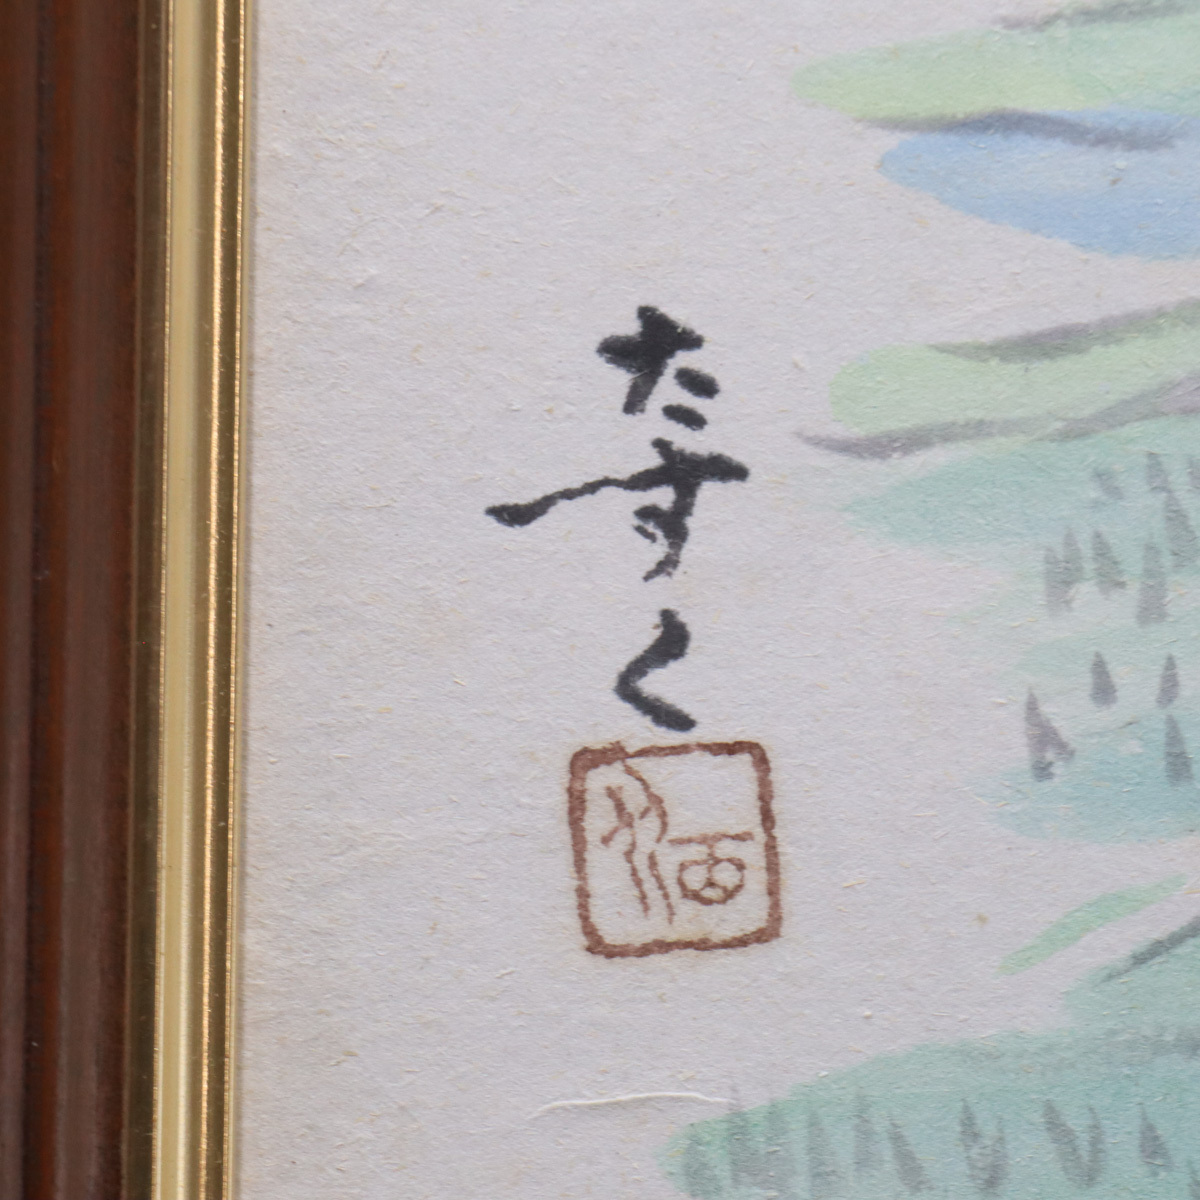 たすく